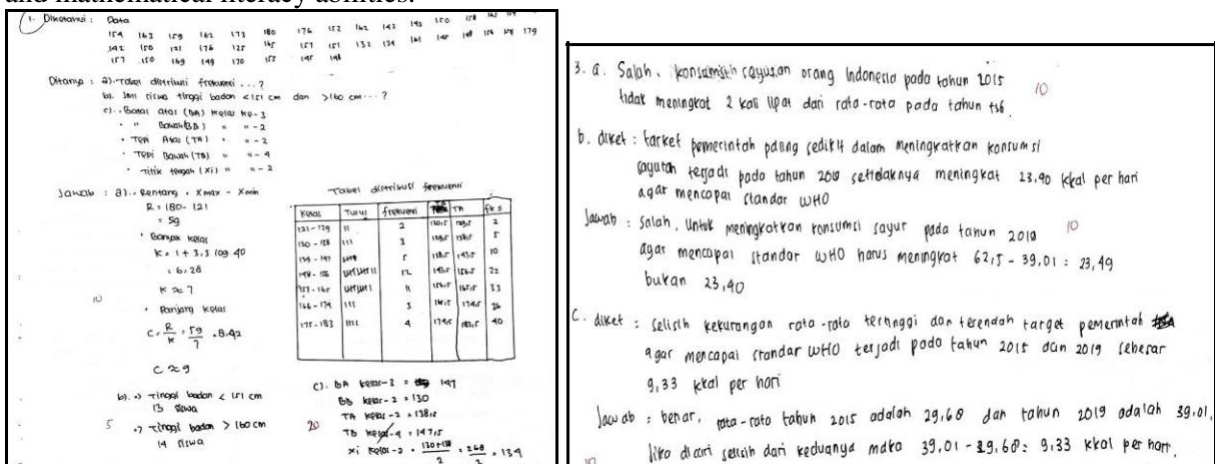 and mathematical literacy abilities.
1. Diketahui : Data
154 163 159 162 173 180 176 152 162 143 142 150
142 150 121 176 125 165 157 151 132 134 179
157 150 169 149 170 155 145 148
Ditanya : a). Tabel distribusi frekuensi ... ?
b). Jml siswa tinggi badan < 151 cm dan > 160 cm ... ?
c). Batas atas (BA) kelas ke-3
" Bawah (BB) " " - 2
Tepi Atas (TA) " " - 2
Tepi Bawah (TB) " " - 4
Titik tengah (Xi) " " - 2
Jawab : a). Rentang = Xmax - Xmin
R = 180 - 121
= 59
Banyak kelas
K = 1 + 3,3 log 40
= 6,28
K ≈ 7
10
Panjang kelas
C = R/K = 59/7 = 8.42
C ≈ 9
b). Tinggi badan < 151 cm
13 siswa
5
Tinggi badan > 160 cm
14 siswa
Tabel distribusi frekuensi
Kelas Turus frekuensi TA fk ≤
121 - 129 II 2 2
130 - 138 III 3 5
139 - 147 5 10
148 - 156 12 22
157 - 165 11 33
166 - 174 III 3 36
175 - 183 IIII 4 40
c). BA kelas-3 = 147
BB kelas-2 = 130
TA kelas-2 = 138,5
20
TB kelas-4 = 147,5
Xi kelas-2 = 130+138/2 = 268/2 = 134
3. a. Salah, konsumsi sayuran orang Indonesia pada tahun 2015
tidak meningkat 2 kali lipat dari rata-rata pada tahun tsb.
10
b. diket : target pemerintah paling sedikit dalam meningkatkan konsumsi
sayuran terjadi pada tahun setidaknya meningkat 23,40 kkal per hari
agar mencapai standar WHO
Jawab : Salah, Untuk meningkatkan konsumsi sayur pada tahun 2019
10
agar mencapai standar WHO harus meningkat 62,5 - 39,01 = 23,49
bukan 23,40
C. diket : selisih kekurangan rata-rata tertinggi dan terendah target pemerintah
agar mencapai standar WHO terjadi pada tahun 2015 dan 2019 sebesar
9,33 kkal per hari
Jawab : benar, rata-rata tahun 2015 adalah 29,68 dan tahun 2019 adalah 39,01.
Jika dicari selisih dari keduanya maka 39,01 - 29,68 = 9,33 kkal per hari.
10